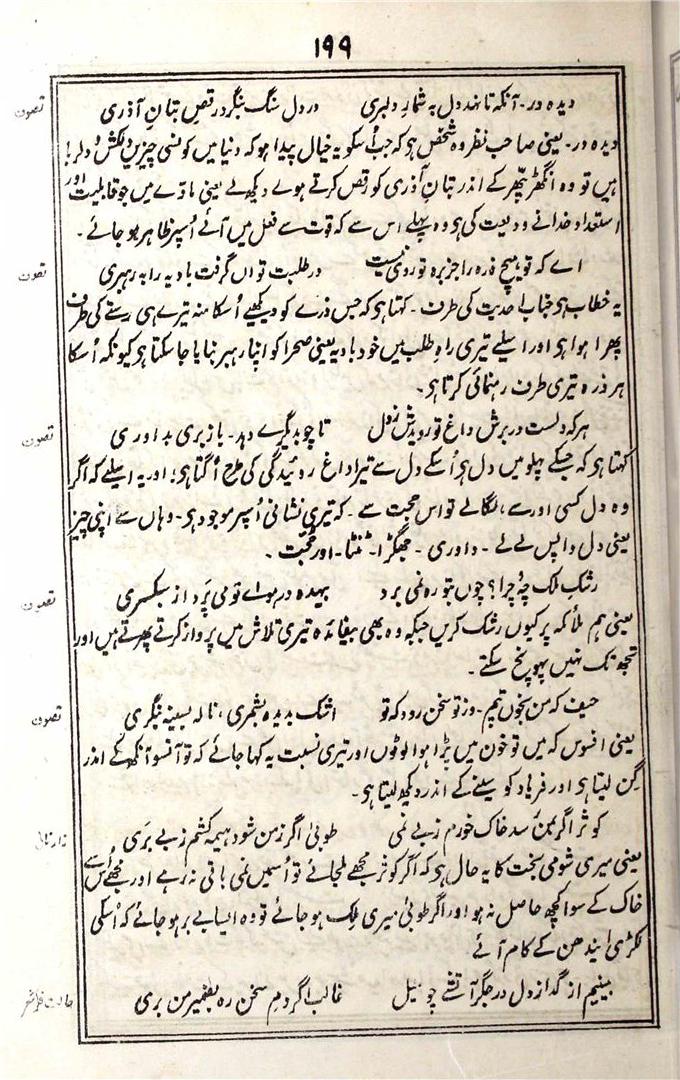 ۱۹۹
تصوف
دیدہ ور۔ آنکہ تا نہد دل بہ شمارِ دلبری در دل سنگ بنگرد رقص بتانِ آذری
دیدہ ور۔ یعنی صاحب نظر وہ شخص ہی کہ جب اُسکو یہ خیال پیدا ہو کہ دنیا میں کونسی چیزیں دلکش و دلربا
ہیں تو وہ انگھڑ پتھر کے اندر بتانِ آذری کو رقص کرتے ہوے دیکھ لے یعنی مادّے میں جو قابلیت اور
استعداد خدا نے ودیعت کی ہی وہ پہلے اس سے کہ قوت سے فعل میں آئے اُسپر ظاہر ہو جائے۔
تصوف
اے کہ تو ہیچ ذرہ را جز برہ تو روی نیست در طلبت تواں گرفت بادیہ را بہ رہبری
یہ خطاب ہی جناب احدیت کی طرف۔ کہتا ہی کہ جس ذرے کو دیکھیے اُسکا منہ تیرے ہی رستے کی طرف
پھرا ہوا ہی اور اسلیے تیری راہِ طلب میں خود بادیہ یعنی صحرا کو اپنا رہبر بنایا جا سکتا ہی کیونکہ اُسکا
ہر ذرہ تیری طرف رہنمائی کرتا ہی۔
تصوف
ہر کہ دلست در برش داغ تو رویدش ز دل تا چو بدیگرے دہد۔ باز بری بداوری
کہتا ہی کہ جسکے پہلو میں دل ہی اُسکے دل سے تیرا داغ روئیدگی کی طرح اُگتا ہی؛ اور یہ اسلیے کہ اگر
وہ دل کسی اور سے لگالے تو اس حجت سے۔ کہ تیری نشانی اُسپر موجود ہی۔ وہاں سے اپنی چیز
یعنی دل واپس لے لے۔ داوری۔ جھگڑا۔ ٹنٹا۔ اور حجّت۔
تصوف
رشکِ ملک چہ و چرا؟ چوں بتو رہ نمی برد بیہدہ در ہواے تو می پرد از سبکسری
یعنی ہم ملائکہ پر کیوں رشک کریں جبکہ وہ بھی بیفائدہ تیری تلاش میں پرواز کرتے پھرتے ہیں اور
تجھ تک نہیں پہونچ سکتے۔
تصوف
حیف کہ من بخوں تپم۔ وز تو سخن رود کہ تو اشک بدیدہ بشمری، نالہ بسینہ بنگری
یعنی افسوس کہ میں تو خون میں پڑا ہوا لوٹوں اور تیری نسبت یہ کہا جائے کہ تو آنسو آنکھ کے اندر
گن لیتا ہی اور فریاد کو سینے کے اندر دیکھ لیتا ہی۔
زار نالی
کوثر اگر بمن رسد خاک خورم ز بے نمی طوبیٰ اگر ز من شود ہیمہ کشم ز بے بری
یعنی میری شومی بخت کا یہ حال ہی کہ اگر کوثر مجھے ملجائے تو اُسمیں نمی باقی نہ رہے اور مجھے اُس سے
خاک کے سوا کچھ حاصل نہ ہو اور اگر طوبیٰ میری ملک ہو جائے تو وہ ایسا بے بر ہو جائے کہ اُسکی
لکڑی ایندھن کے کام آئے
بینیم از گداز دل در جگر آتشے چو سیل غالب اگر دمِ سخن رہ بضمیر من بری